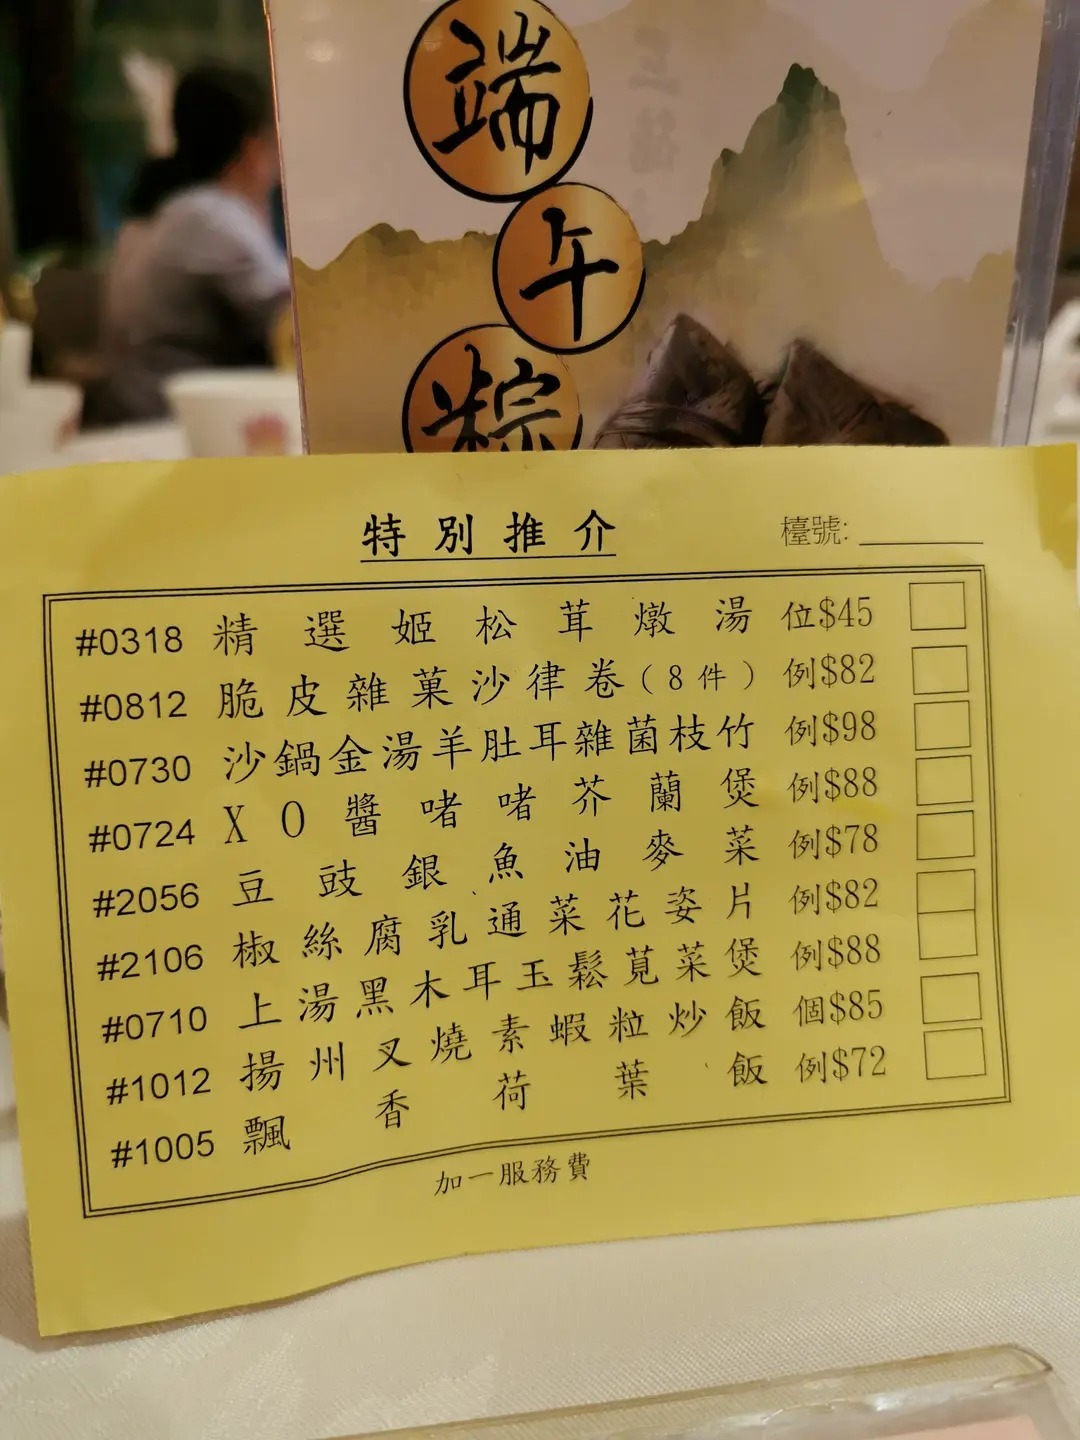 端
午
粽
特別推介
檯號:
#0318 精選姬松茸燉湯 位$45
#0812 脆皮雜菓沙律卷(8件) 例$82
#0730 沙鍋金湯羊肚耳雜菌枝竹 例$98
#0724 XO醬啫啫芥蘭煲 例$88
#2056 豆豉銀魚油麥菜 例$78
#2106 椒絲腐乳通菜花姿片 例$82
#0710 上湯黑木耳玉鬆莧菜煲 例$88
#1012 揚州叉燒素蝦粒炒飯 個$85
#1005 飄香荷葉飯 例$72
加一服務費